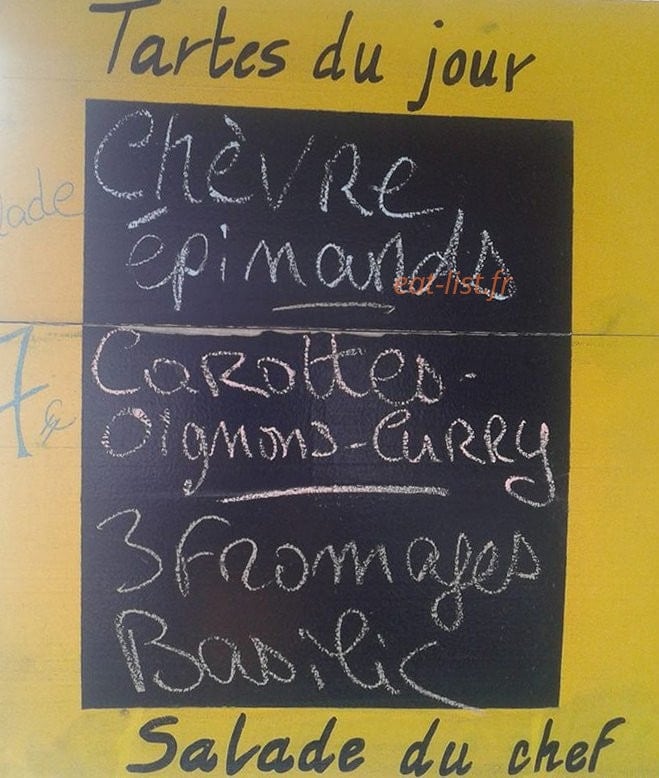 Tartes du jour
Chèvre
épinards
eat-list.fr
Carottes-
Oignons-Curry
7€
3 Fromages
Basilic
Salade du chef